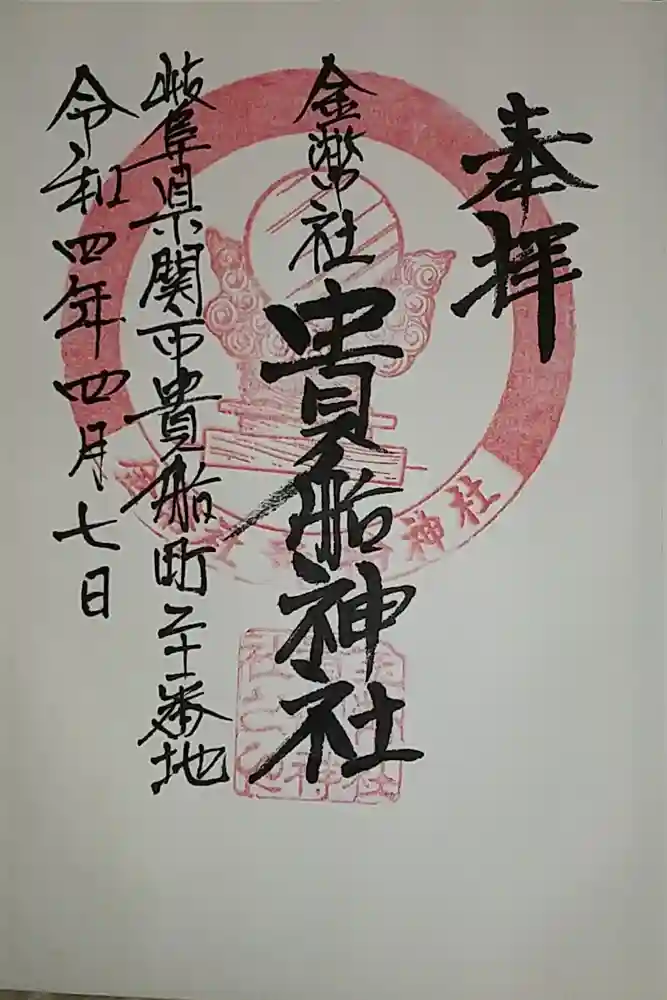 奉拝
金幣社
貴船神社
岐阜県関市貴船町二十番地
令和四年四月七日
神社